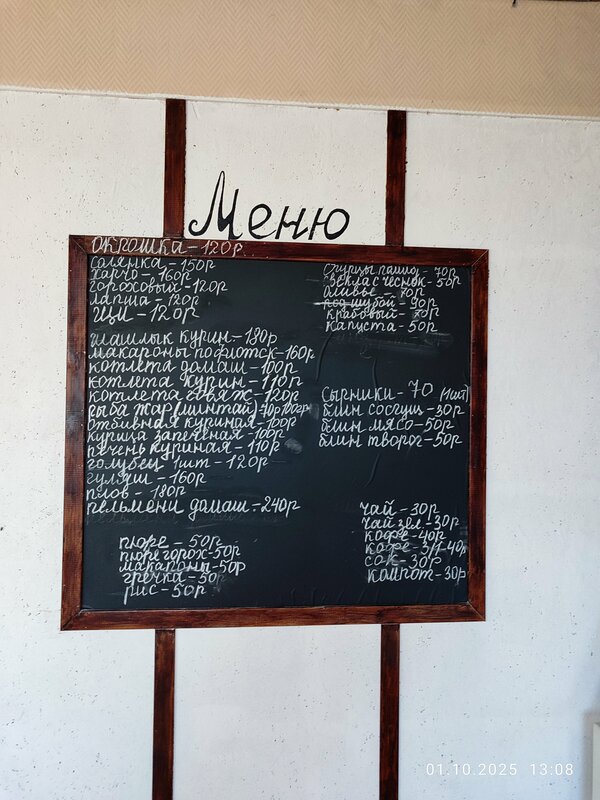 Меню
окрошка - 120р
солянка - 150р
харчо - 160р
гороховый - 120р
лапша - 120р
щи - 120р
шашлык курин - 180р
макароны пофлотск - 160р
котлета домаш - 100р
котлета курин - 110р
котлета говяж - 120р
рыба жар (минтай)
отбивная куриная - 100р
курица запеченая - 100р
печень куриная - 110р
голубец 1шт - 120р
гуляш - 160р
плов - 180р
пельмени домаш - 240р
пюре - 50р
пюре горох - 50р
макароны - 50р
гречка - 50р
рис - 50р
Огурцы - 70р
свекла с чеснок - 50р
оливье - 70р
под шубой - 90р
крабовый - 70р
капуста - 50р
Сырники - 70 (1шт)
блин сосеуш - 30р
блин мясо - 50р
блин творог - 50р
чай - 30р
чай зел - 30р
кофе - 40р
кофе 3/1 - 40р
сок - 30р
компот - 30р
01.10.2025 13:08